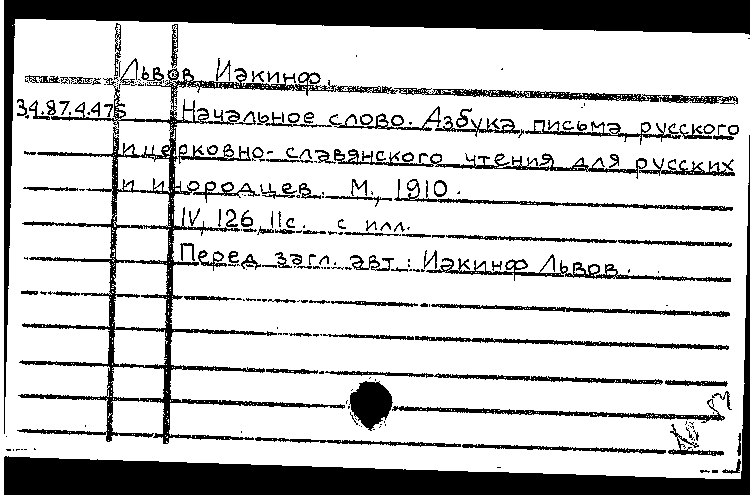 Львов, Иакинф.
34.87.4.475 Начальное слово. Азбука, письма, русского
и церковно-славянского чтения для русских
и инородцев. М., 1910.
IV, 126, II с. с илл.
Перед загл. авт.: Иакинф Львов.